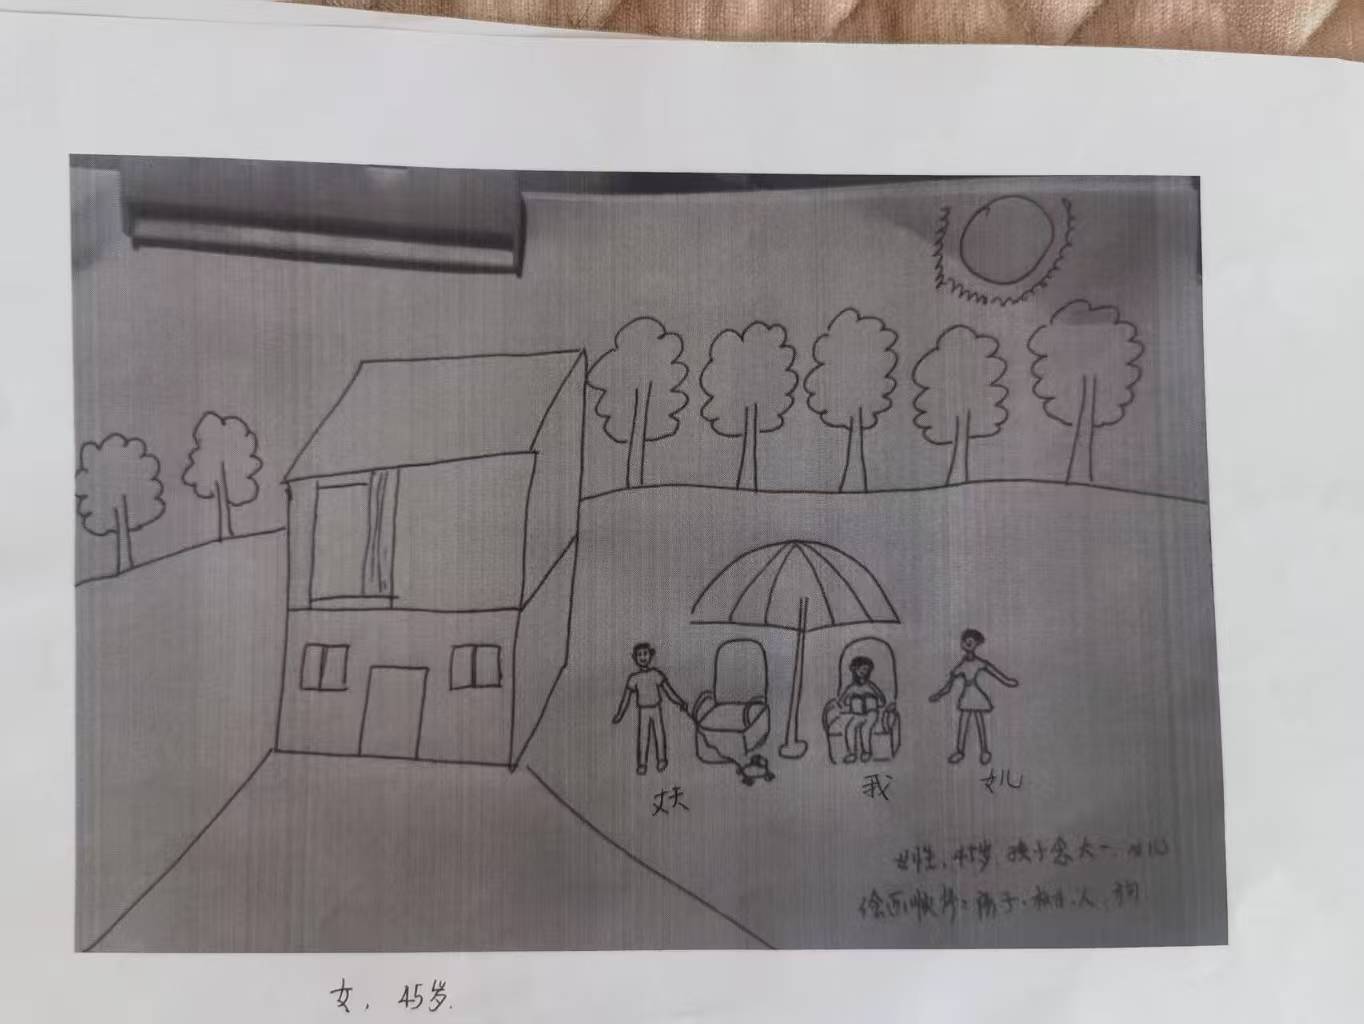 丈夫
我
女儿
女性、45岁、孩子念大一、
绘画顺序：房子、树木、人、狗
女，45岁.